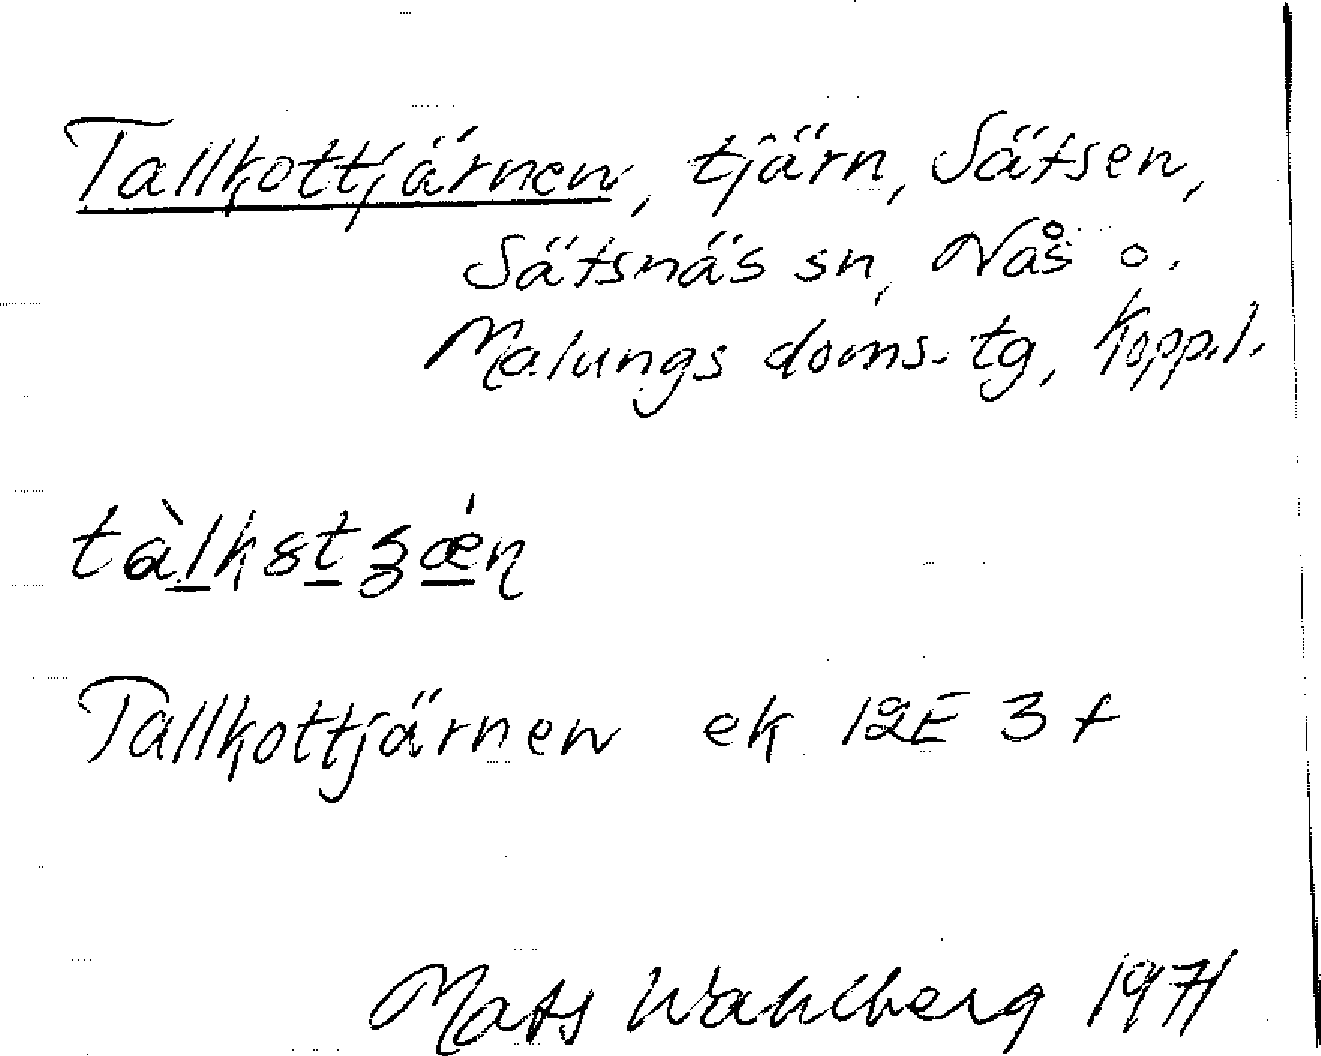 Tallkottjärnen, tjärn, Säfsen,
Säfsnäs sn, Nås o.
Malungs doms. tg, Kopp.l.
Tallkottjärnen ek 12E 3f
Mats Wahlberg 1971